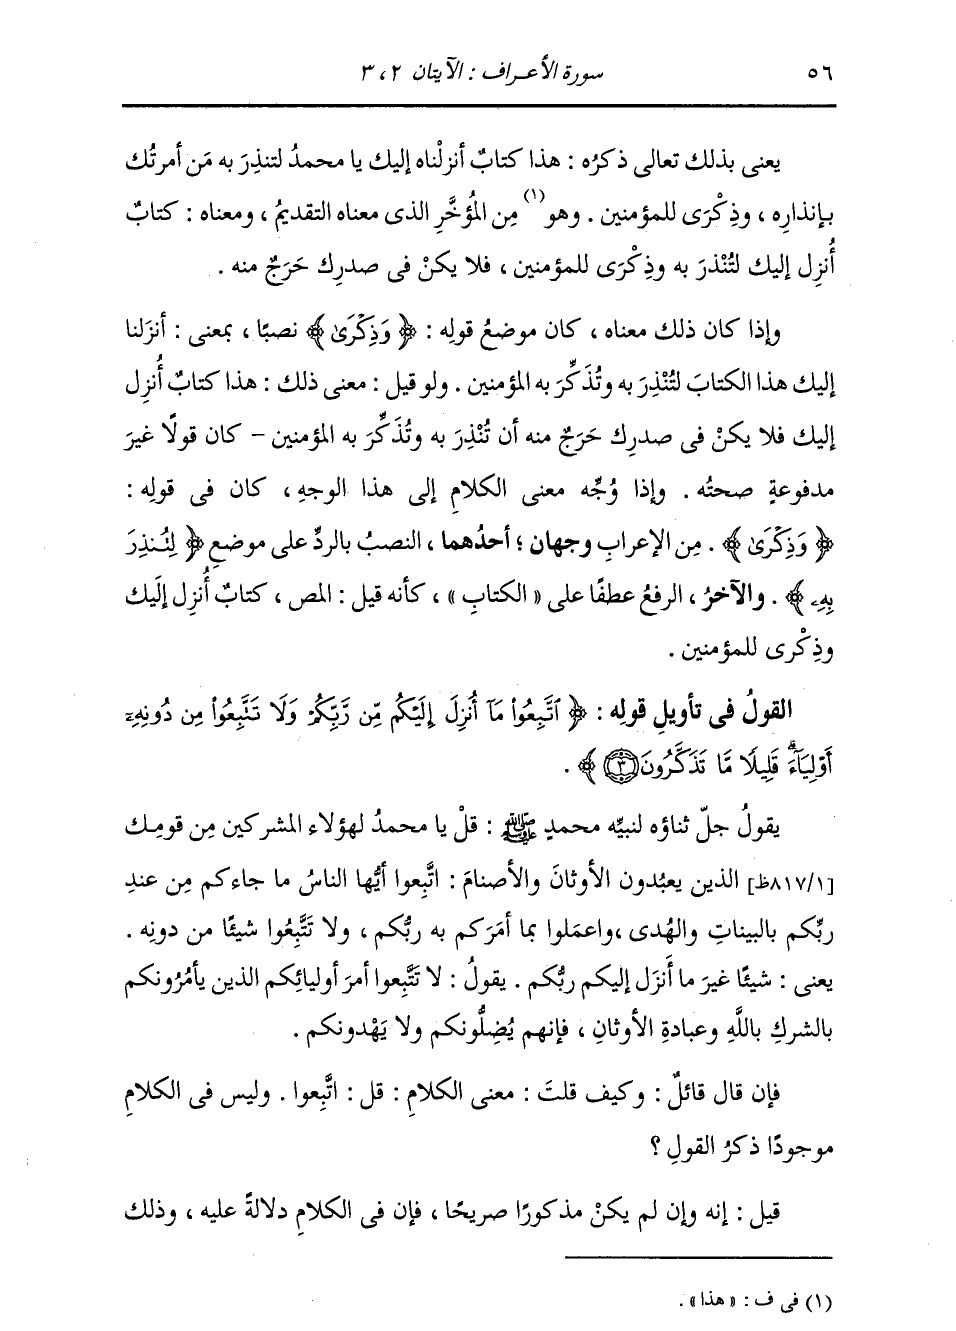 ٥٦ سورة الأعراف : الآيتان ٢ ، ٣
يعنى بذلك تعالى ذكرُه : هذا كتابٌ أنزلْناه إليك يا محمدُ لتنذِرَ به مَن أمرتُك
بإنذارِه ، وذِكْرَى للمؤمنين . وهو(١) مِن المُؤخَّرِ الذى معناه التقديمُ ، ومعناه : كتابٌ
أُنزل إليك لتُنْذرَ به وذِكْرَى للمؤمنين ، فلا يكنْ فى صدرِك حَرَجٌ منه .
وإذا كان ذلك معناه ، كان موضعُ قولِه : ﴿ وَذِكْرَىٰ ﴾ نصبًا ، بمعنى : أنزَلنا
إليك هذا الكتابَ لتُنْذِرَ به وتُذَكِّرَ به المؤمنين . ولو قيل : معنى ذلك : هذا كتابٌ أُنزِل
إليك فلا يكنْ فى صدرِك حَرَجٌ منه أن تُنْذِرَ به وتُذَكِّرَ به المؤمنين – كان قولًا غيرَ
مدفوعةٍ صحتُه . وإذا وُجِّه معنى الكلامِ إلى هذا الوجهِ ، كان فى قولِه :
﴿ وَذِكْرَىٰ ﴾ . مِن الإعرابِ وجهان ؛ أحدُهما ، النصبُ بالردِّ على موضعِ ﴿ لِنُنذِرَ
بِهِۦ ﴾ . والآخرُ ، الرفعُ عطفًا على « الكتابِ » ، كأنه قيل : المص ، كتابٌ أُنزِل إلَيك
وذِكْرى للمؤمنين .
القولُ فى تأويلِ قولِه : ﴿ ٱتَّبِعُوا۟ مَآ أُنزِلَ إِلَيْكُم مِّن رَّبِّكُمْ وَلَا تَتَّبِعُوا۟ مِن دُونِهِۦٓ
أَوْلِيَآءَۗ قَلِيلًا مَّا تَذَكَّرُونَ ٣ ﴾ .
يقولُ جلّ ثناؤه لنبيِّه محمدٍ ﷺ : قلْ يا محمدُ لهؤلاء المشركين مِن قومِك
[٨١٧/١ظ] الذين يعبُدون الأوثانَ والأصنامَ : اتَّبِعوا أيُّها الناسُ ما جاءكم مِن عندِ
ربِّكم بالبيناتِ والهُدى ،واعمَلوا بما أمَرَكم به ربُّكم ، ولا تَتَّبِعُوا شيئًا من دونِه .
يعنى : شيئًا غيرَ ما أَنزَل إليكم ربُّكم . يقولُ : لا تَتَّبِعوا أمرَ أوليائِكم الذين يأمُرُونكم
بالشركِ باللَّهِ وعبادةِ الأوثانِ ، فإنهم يُضِلُّونكم ولا يَهْدونكم .
فإن قال قائلٌ : وكيف قلتَ : معنى الكلامِ : قل : اتَّبِعوا . وليس فى الكلامِ
موجودًا ذكرُ القولِ ؟
قيل : إنه وإن لم يكنْ مذكورًا صريحًا ، فإن فى الكلامِ دلالةً عليه ، وذلك
(١) فى ف : « هذا » .